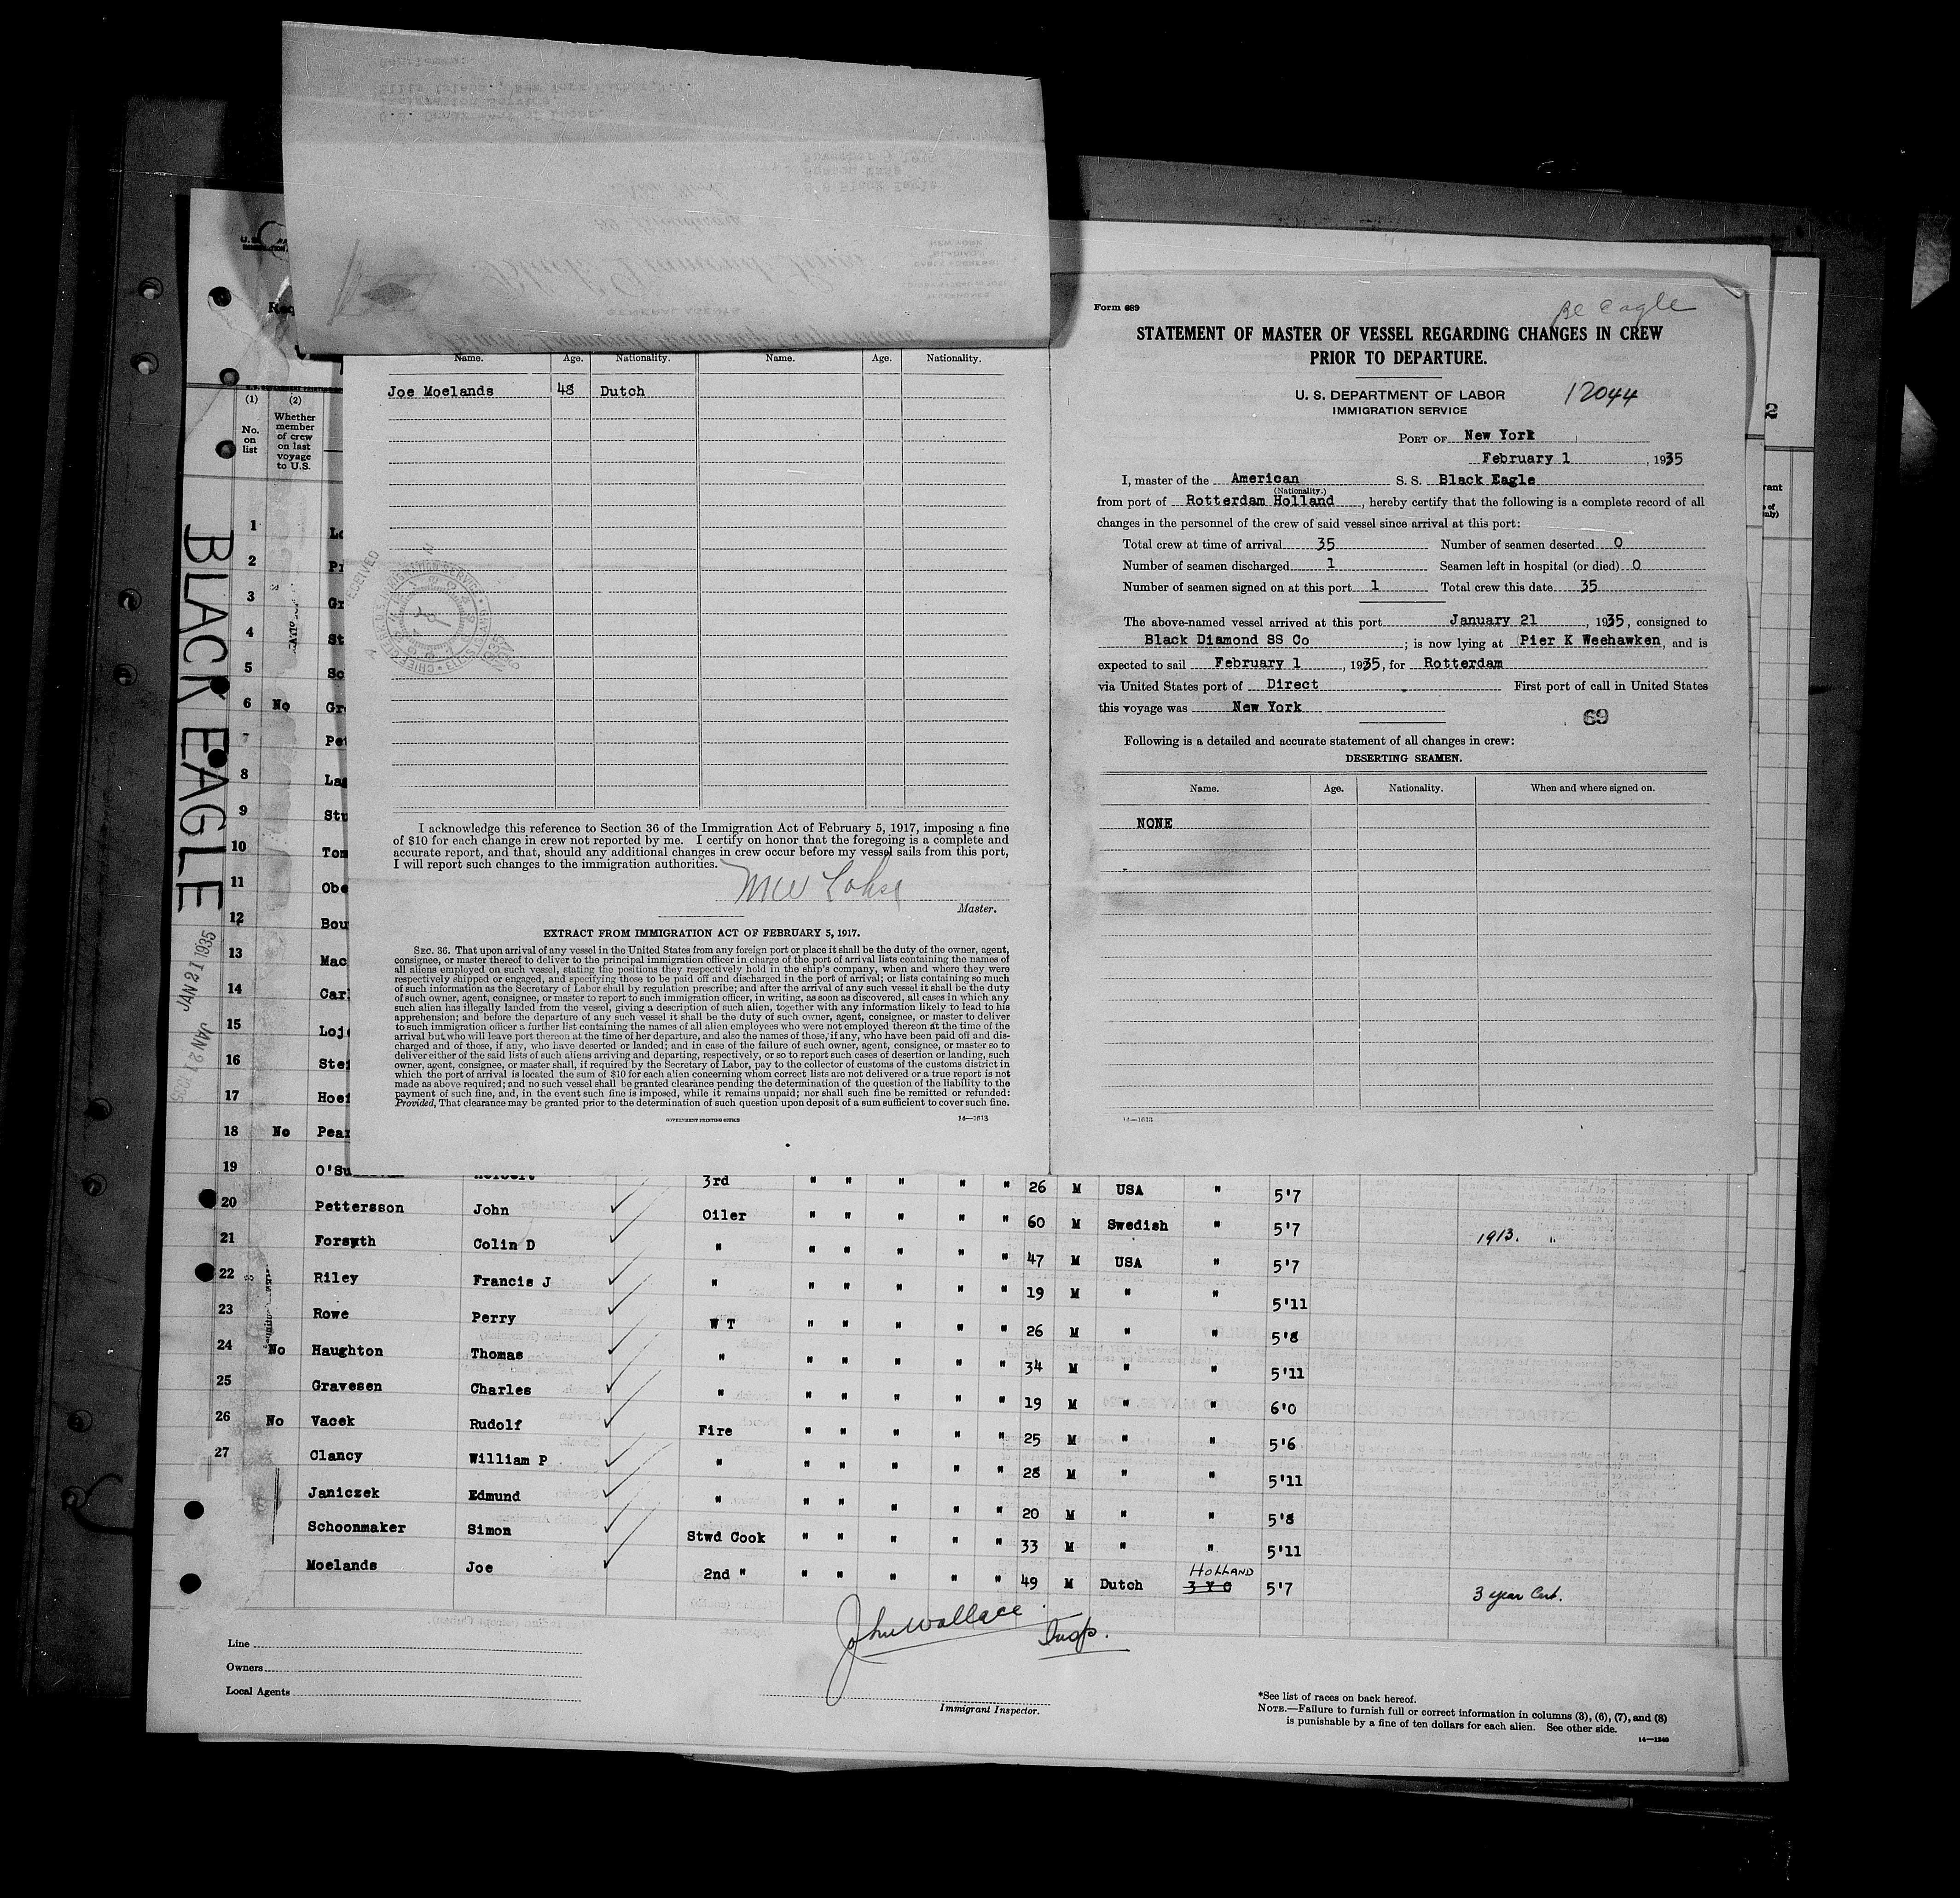 Name. Age. Nationality. Name. Age. Nationality.
Joe Moelands 48 Dutch
I acknowledge this reference to Section 36 of the Immigration Act of February 5, 1917, imposing a fine
of $10 for each change in crew not reported by me. I certify on honor that the foregoing is a complete and
accurate report, and that, should any additional changes in crew occur before my vessel sails from this port,
I will report such changes to the immigration authorities.
Master.
EXTRACT FROM IMMIGRATION ACT OF FEBRUARY 5, 1917.
SEC. 36. That upon arrival of any vessel in the United States from any foreign port or place it shall be the duty of the owner, agent,
consignee, or master thereof to deliver to the principal immigration officer in charge of the port of arrival lists containing the names of
all aliens employed on such vessel, stating the positions they respectively hold in the ship's company, when and where they were
respectively shipped or engaged, and specifying those to be paid off and discharged in the port of arrival; or lists containing so much
of such information as the Secretary of Labor shall by regulation prescribe; and after the arrival of any such vessel it shall be the duty
of such owner, agent, consignee, or master to report to such immigration officer, in writing, as soon as discovered, all cases in which any
such alien has illegally landed from the vessel, giving a description of such alien, together with any information likely to lead to his
apprehension; and before the departure of any such vessel it shall be the duty of such owner, agent, consignee, or master to deliver
to such immigration officer a further list containing the names of all alien employees who were not employed thereon at the time of the
arrival but who will leave port thereon at the time of her departure, and also the names of those, if any, who have been paid off and dis-
charged and of those, if any, who have deserted or landed; and in case of the failure of such owner, agent, consignee, or master so to
deliver either of the said lists of such aliens arriving and departing, respectively, or so to report such cases of desertion or landing, such
owner, agent, consignee, or master shall, if required by the Secretary of Labor, pay to the collector of customs of the customs district in
which the port of arrival is located the sum of $10 for each alien concerning whom correct lists are not delivered or a true report is not
made as above required; and no such vessel shall be granted clearance pending the determination of the question of the liability to the
payment of such fine, and, in the event such fine is imposed, while it remains unpaid; nor shall such fine be remitted or refunded:
Provided, That clearance may be granted prior to the determination of such question upon deposit of a sum sufficient to cover such fine.
GOVERNMENT PRINTING OFFICE 14—1613
Form 689
Bl Eagle
STATEMENT OF MASTER OF VESSEL REGARDING CHANGES IN CREW
PRIOR TO DEPARTURE.
U. S. DEPARTMENT OF LABOR
IMMIGRATION SERVICE
12044
PORT OF New York
February 1, 1935
I, master of the American S. S. Black Eagle
(Nationality.)
from port of Rotterdam Holland, hereby certify that the following is a complete record of all
changes in the personnel of the crew of said vessel since arrival at this port:
Total crew at time of arrival 35 Number of seamen deserted 0
Number of seamen discharged 1 Seamen left in hospital (or died) 0
Number of seamen signed on at this port 1 Total crew this date 35
The above-named vessel arrived at this port January 21, 1935, consigned to
Black Diamond SS Co; is now lying at Pier K Weehawken, and is
expected to sail February 1, 1935, for Rotterdam
via United States port of Direct First port of call in United States
this voyage was New York
69
Following is a detailed and accurate statement of all changes in crew:
DESERTING SEAMEN.
Name. Age. Nationality. When and where signed on.
NONE
14—1613
BLACK EAGLE
JAN 21 1935
JAN 21 1935
(1) (2)
No. on list
Whether member of crew on last voyage to U.S.
1 Lo
2 Pr
3 Gr
4 St
5 Sc
6 No Gro
7 Pet
8 Las
9 Stu
10 Tom
11 Obe
12 Bou
13 Mac
14 Carl
15 Loj
16 Stei
17 Hoei
18 No Pear
19 O'Su Herbert 3rd " " " " " 26 M USA " 5'7
20 Pettersson John Oiler " " " " " 60 M Swedish " 5'7 1913. "
21 Forsyth Colin D " " " " " " 47 M USA " 5'7
22 Riley Francis J " " " " " " 19 M " " 5'11
23 Rowe Perry W T " " " " " 26 M " " 5'8
24 No Haughton Thomas " " " " " " 34 M " " 5'11
25 Gravesen Charles " " " " " " 19 M " " 6'0
26 No Vacek Rudolf Fire " " " " " 25 M " " 5'6
27 Clancy William P " " " " " " 28 M " " 5'11
Janiczek Edmund " " " " " " 20 M " " 5'8
Schoonmaker Simon Stwd Cook " " " " " 33 M " " 5'11
Moelands Joe 2nd " " " " " " 49 M Dutch HOLLAND 3 Y C 5'7 3 year Cert.
John Wallace Insp.
Line
Owners
Local Agents
Immigrant Inspector.
*See list of races on back hereof.
NOTE.—Failure to furnish full or correct information in columns (3), (6), (7), and (8)
is punishable by a fine of ten dollars for each alien. See other side.
14—1240